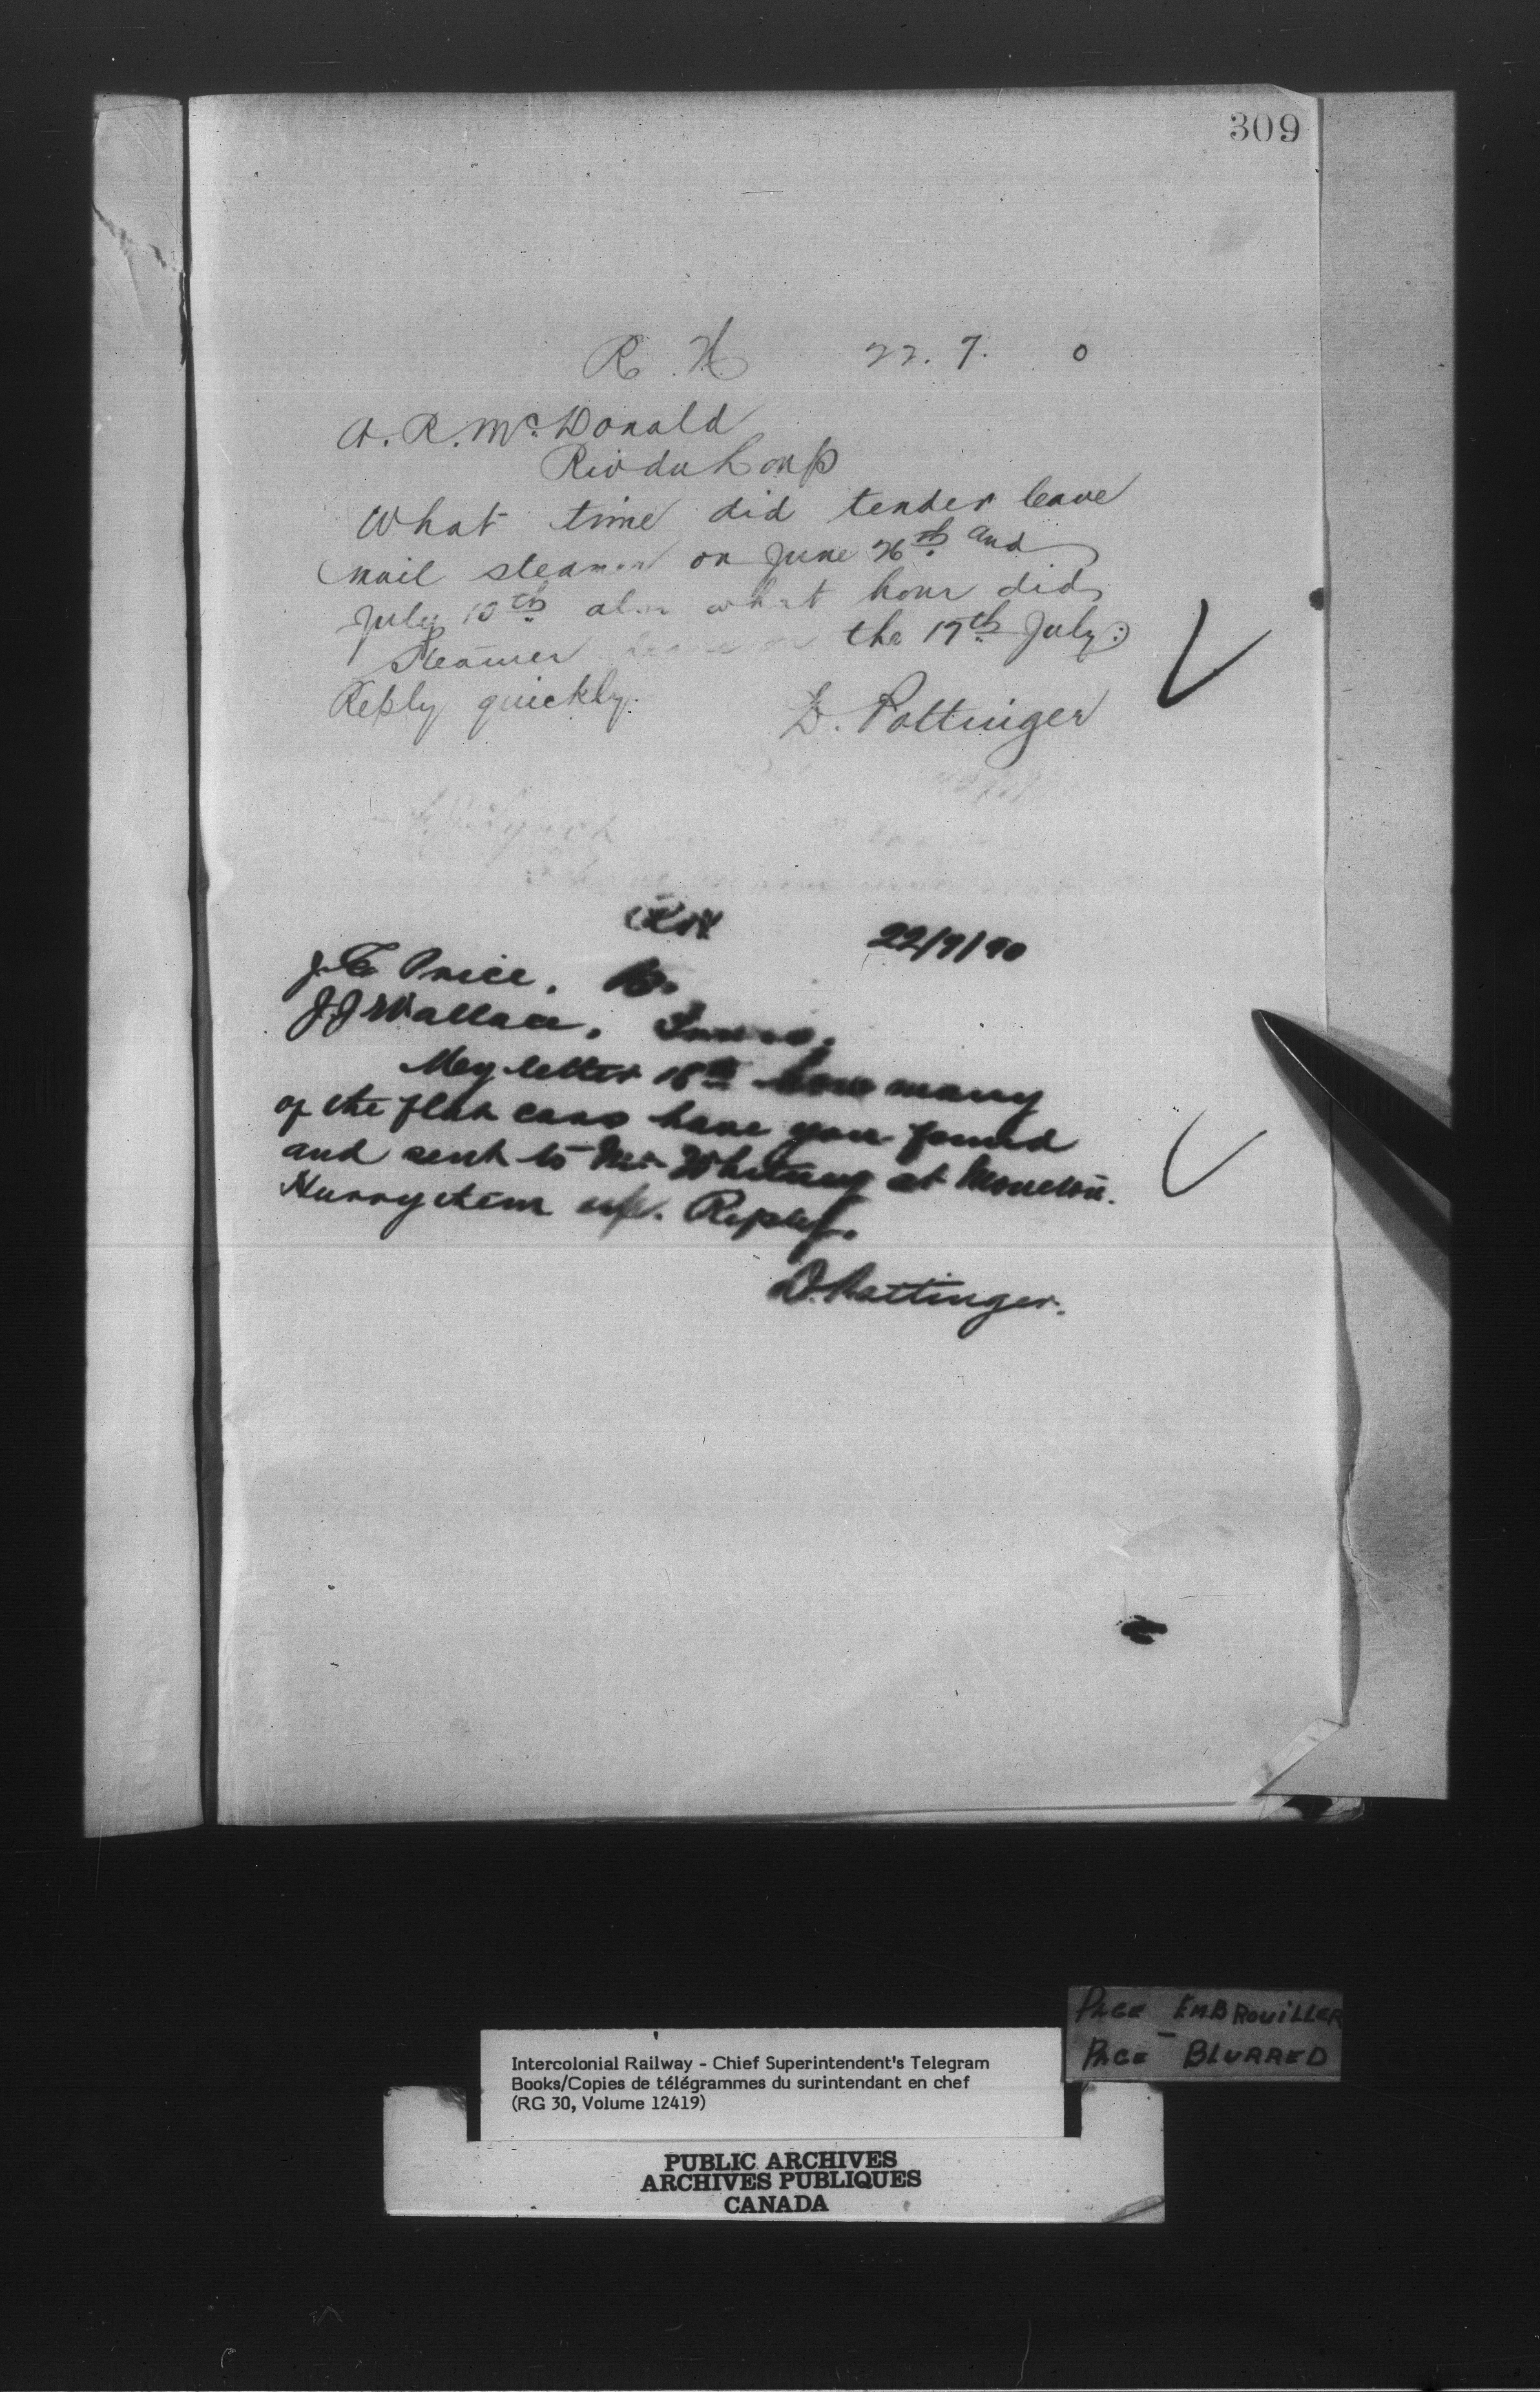 309
R. H 22. 7. 0
A. R. McDonald
Riv du Loup
What time did tender leave
mail steamer on June 26th and
July 10th also what hour did
Steamer leave on the 17th July?
Reply quickly.
D. Pottinger
22/7/90
J. E. Price.
J J Wallace.
My letter 18th how many
of the flat cars have you found
and sent to Mr Whitney at Moncton.
Hurry them up. Reply.
D. Pottinger.
PAGE EMBROUILLER
PAGE - BLURRED
Intercolonial Railway - Chief Superintendent's Telegram
Books/Copies de télégrammes du surintendant en chef
(RG 30, Volume 12419)
PUBLIC ARCHIVES
ARCHIVES PUBLIQUES
CANADA